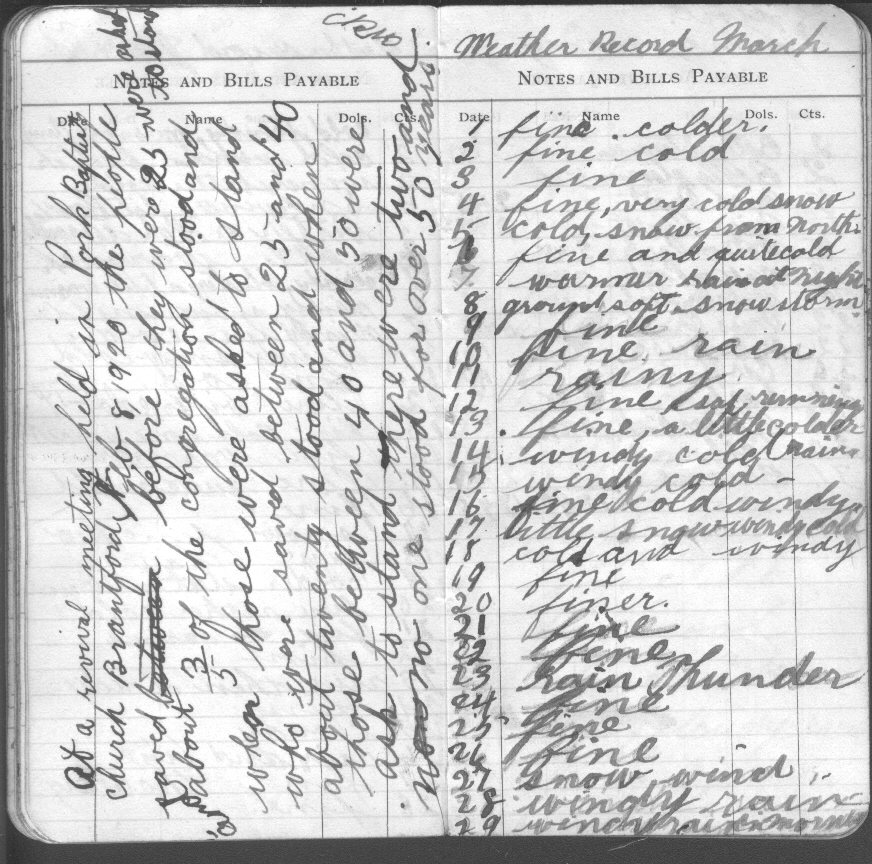 NOTES AND BILLS PAYABLE
Date Name Dols. Cts.
At a revival meeting held in Park Baptist
church Brantford, Feb 8, 1920 the people
saved between before they were 25 were asked to stand
about 3/5 of the congregation stood and
when those were asked to stand
who were saved between 25 and 40
about twenty stood and when
those between 40 and 50 were
ask to stand there were two and
no one stood for over 50 years.
Weather Record March
NOTES AND BILLS PAYABLE
Date Name Dols. Cts.
1 fine. colder.
2 fine cold
3 fine
4 fine, very cold snow
5 cold, snow from North.
6 fine and quite cold
7 warmer rain at night
8 ground soft. snow storm
9 fine
10 fine, rain
11 rainy
12 fine sap running
13 fine, a little colder
14 windy cold (rain
15 windy cold -
16 fine cold windy
17 little snow windy cold
18 cold and windy
19 fine
20 finer.
21 fine
22 fine
23 rain Thunder
24 fine
25 fine
26 fine
27 snow wind
28 windy rain
29 windy rain in morning